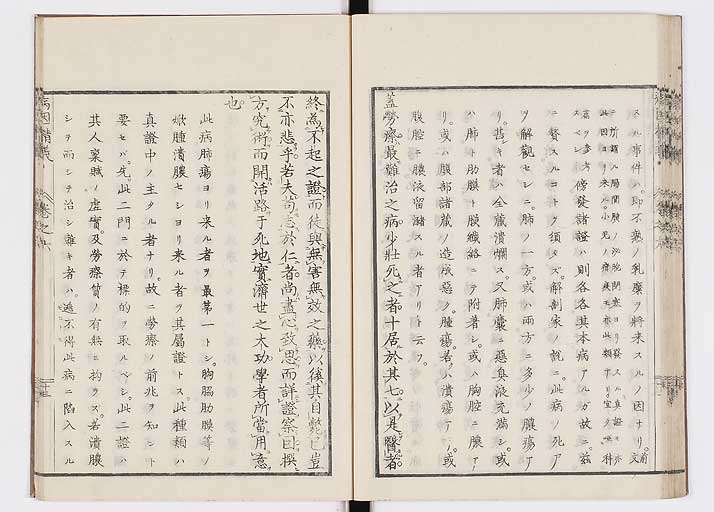 スル事件ハ即不熟ノ乳糜ヲ將来スルノ因ナリ前文
ニ所謂ル腸間膜ノ泌胞閉塞ヨリ發スル真證モ亦
此因ヨリ来ル小兒ノ疳疾モ亦此類ナリ宜ク
ヲ参考スベシ傍發諸證ハ則各各其本病アルガ故ニ茲
ニ贅スルコトヲ須ヒズ解剖家ノ說ニ此病ノ死ア
ヲ解觀セシニ肺ノ一方或ハ兩方ニ多少ノ膿瘍ア
リ甚シキ者ハ全蔵潰爛ス又肺嚢ニ惡臭液充滿シ或
ハ肺ト肋膜ト膜纖絡ニテ附着シ或ハ胸腔ニ膿ア
リ或ハ腹部諸蔵ノ造成惡ク腫瘍若ハ潰瘍アリ或
腹腔ニ膿液留瀦スル者アリト云フ
蓋勞瘵最難治之病少壮死之者十居於其七以是醫者
終為不起之證而徒與無害無效之藥以後其自斃已豈
不亦悲乎若夫苟志於仁者尚盡心致思而詳證察因撰
方究術而開活路于死地實濟世之大功學者所當用意
也
此病肺瘍ヨリ来ル者ヲ最第一トシ胸膈肋膜等ノ
焮腫潰膿セシヨリ来ル者ヲ其屬證トス此種類ハ
真證中ノ主タル者ナリ故ニ勞瘵ノ前兆ヲ知ント
要セハ先此二門ニ於テ標的ヲ取ルベシ此二證ハ
其人稟賦ノ虚實及勞瘵質ノ有無ニ拘ラズ若潰膿
シテ而シテ治シ難キ者ハ遁不得此病ニ陷入スル